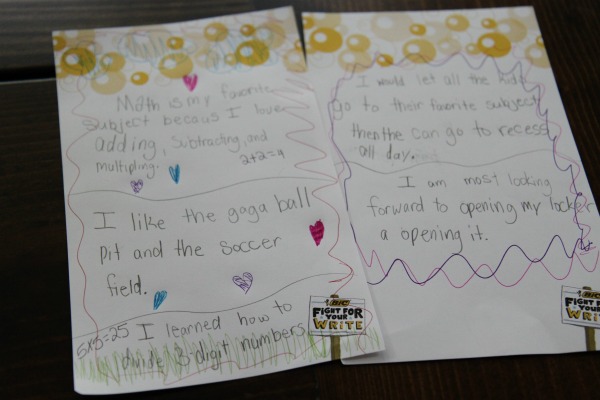 Math is my favorite
subject becaus I love
adding, Subtracting, and
multipling.
2+2=4
I like the gaga ball
Pit and the Soccer
field.
5x5=25 I learned how to
divide 3-digit numbers.
BIC
FIGHT FOR
YOUR
WRITE
I would let all the kids
go to their favorite subject
then the can go to recess
all day.
I am most looking
forward to opening my locker
a opening it.
BIC
FIGHT FOR
YOUR
WRITE